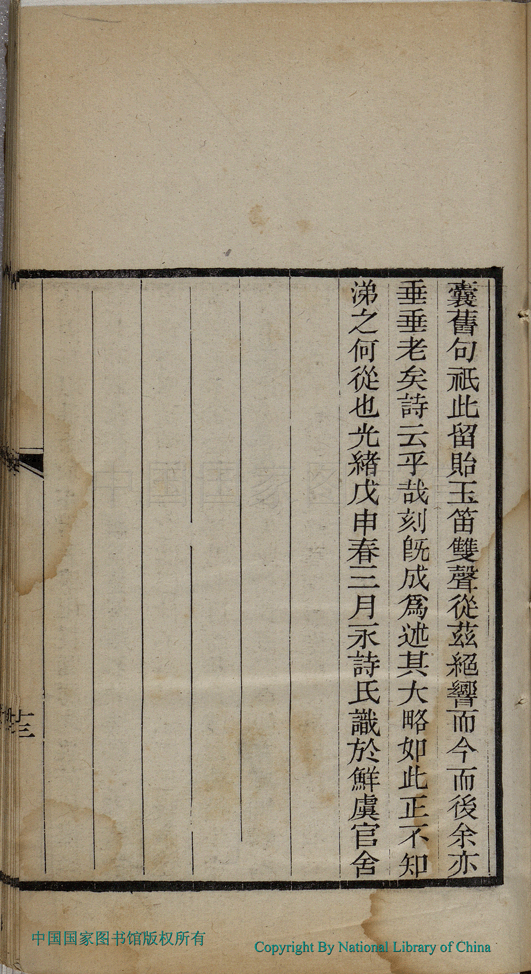 囊舊句祇此留貽玉笛雙聲從茲絕響而今而後余亦
垂垂老矣詩云乎哉刻旣成爲述其大略如此正不知
涕之何從也光緒戊申春三月永詩氏識於鮮虞官舍
十三
中国国家图书馆版权所有
Copyright By National Library of China